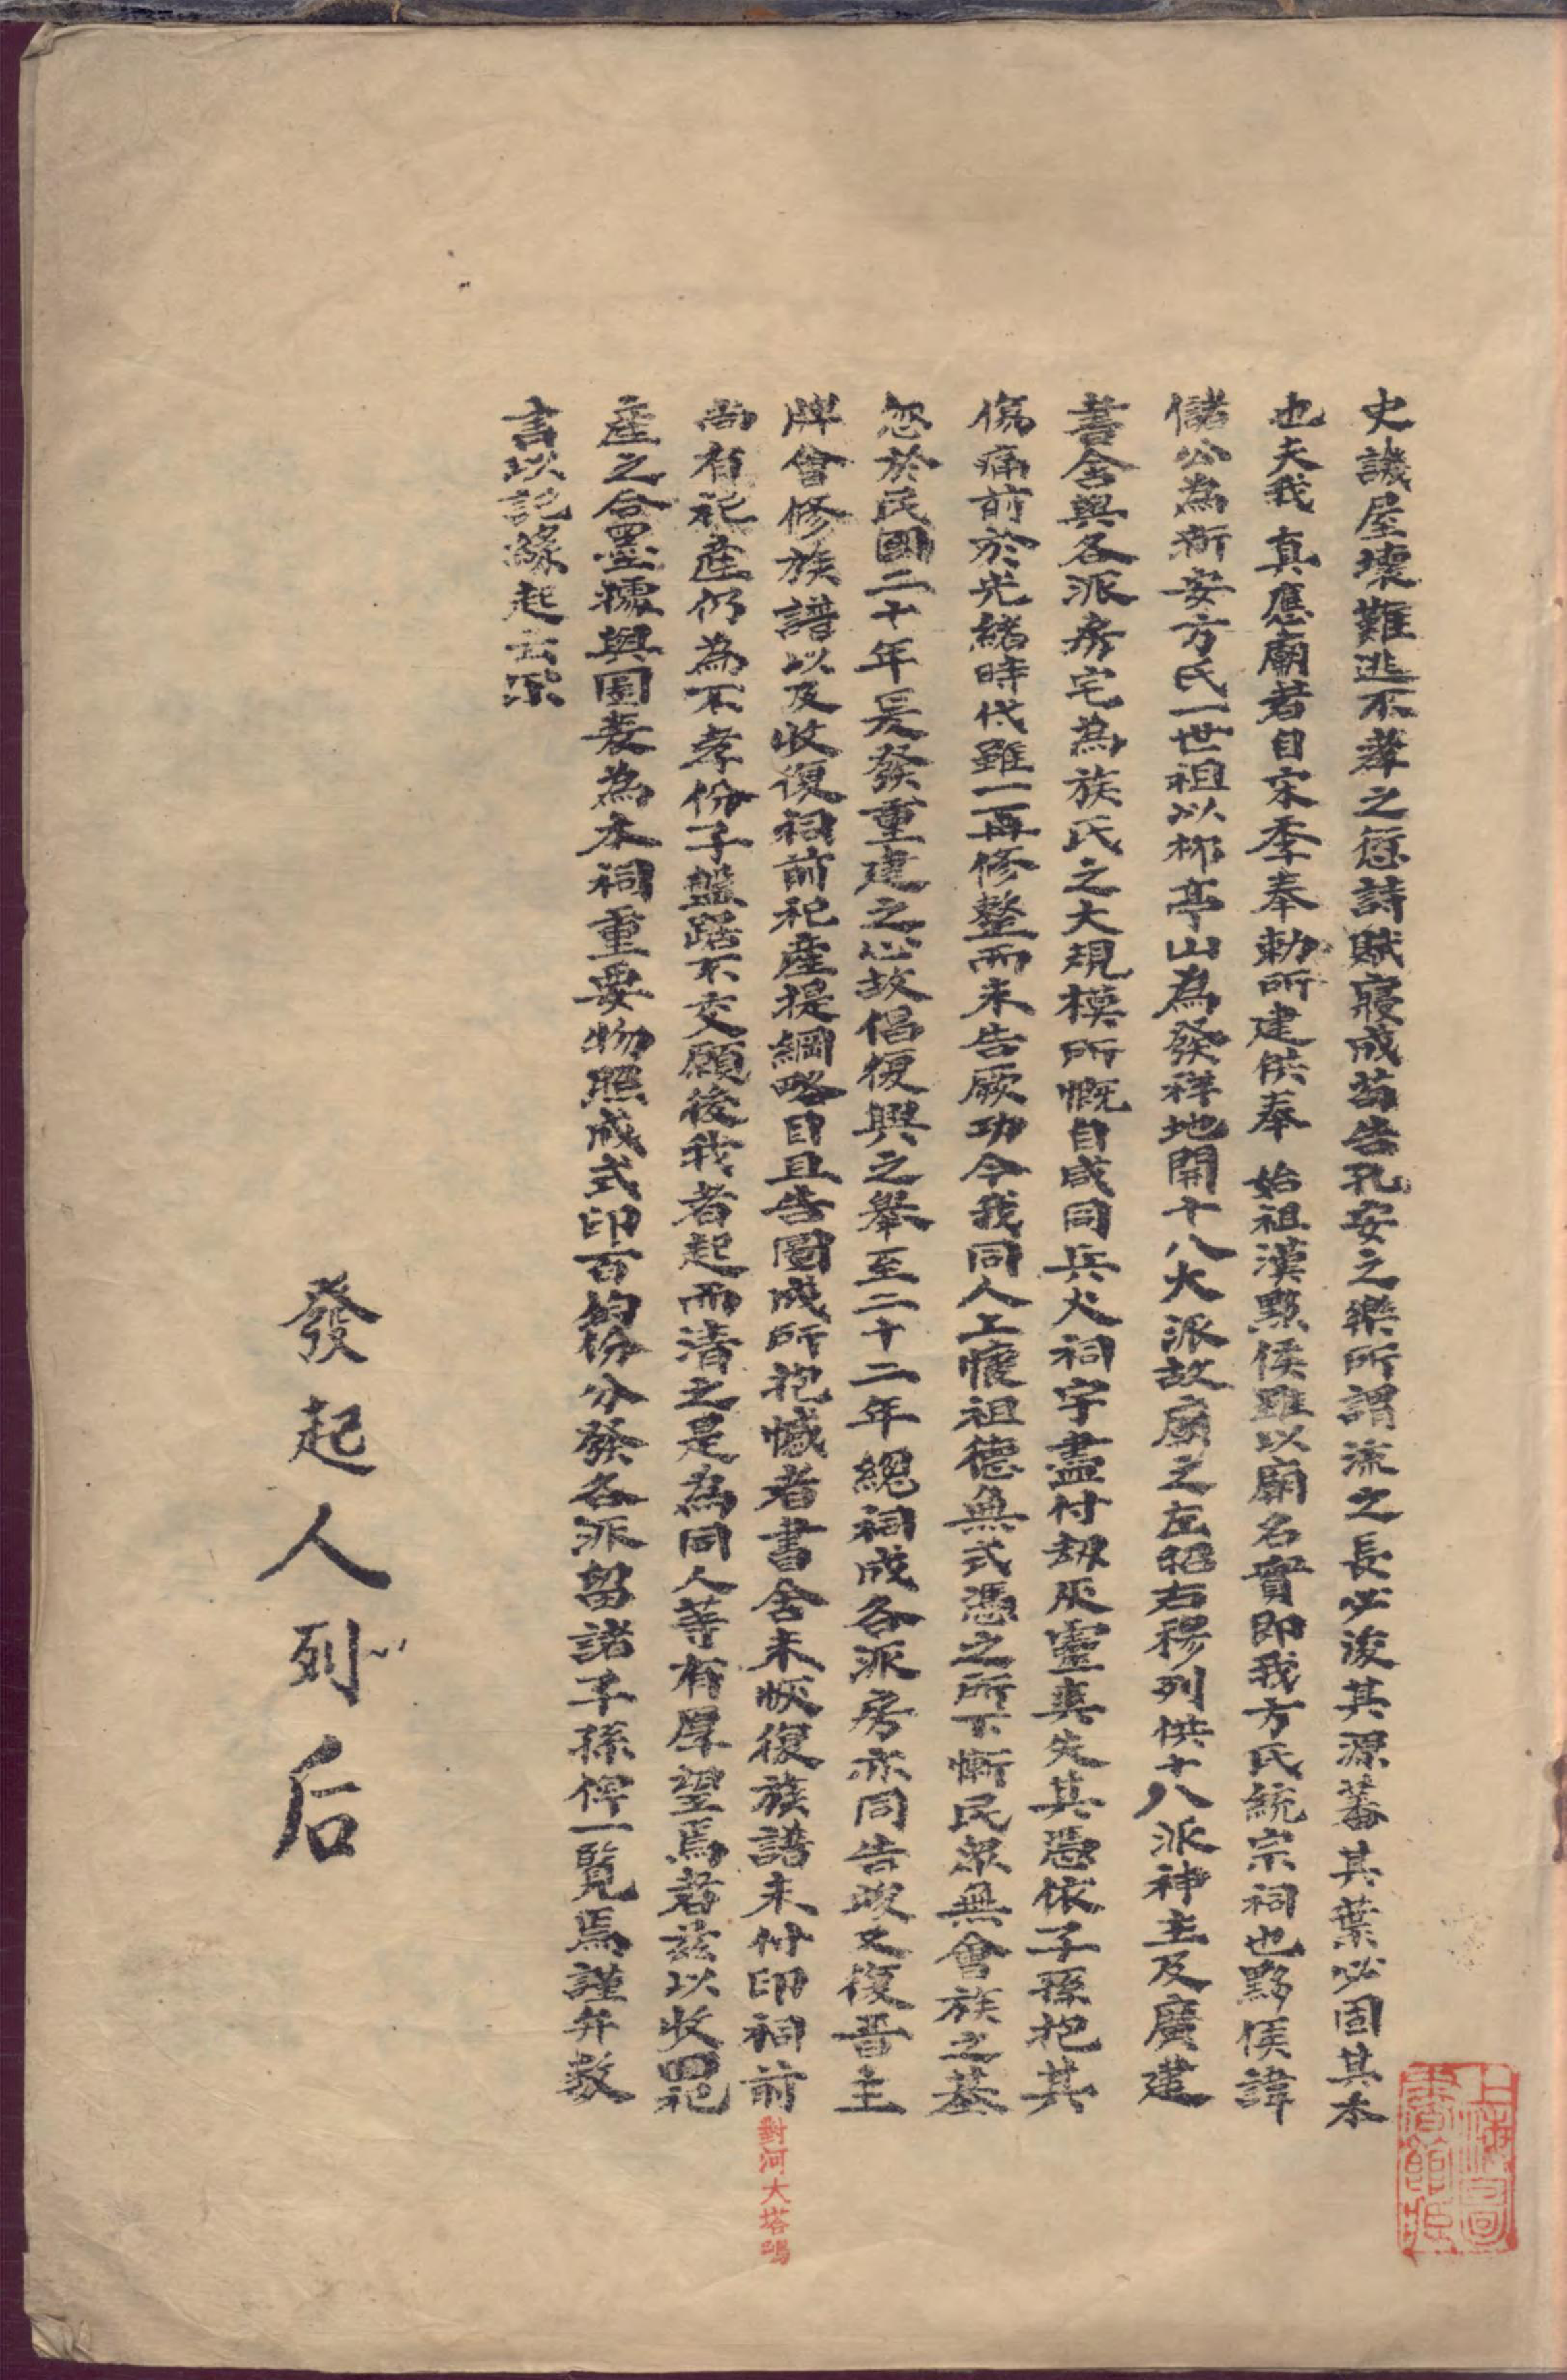 史譏屋壞難逃不葺之愆詩賦寢成苟告孔安之樂所謂流之長必浚其源蕃其葉必固其本
也夫我 真應廟者自宋季奉勅所建供奉 始祖漢黟侯雖以廟名實即我方氏統宗祠也黟侯諱
儲公為新安方氏一世祖以柳亭山為發祥地開十八大派故廟之左昭右穆列供十八派神主及廣建
書舍與各派房宅為族氏之大規模所慨自咸同兵火祠宇盡付刼灰靈爽失其憑依子孫抱其
傷痛前於光緒時代雖一再修整而未告厥功今我同人上懷祖德無式憑之所下慚民眾無會族之基
忽於民國二十年爰發重建之心故倡復興之舉至二十二年總祠成各派房亦同告竣又復晉主
牌會修族譜以及收復祠前祀產提綱略目且告圖成所抱憾者書舍未恢復族譜未付印祠前
對河大塔塢
尚有祀產仍為不孝份子盤踞不交願後我者起而清之是為同人等有厚望焉者茲以收囬祀
產之合墨據與圖表為本祠重要物照成式印百份分發各派留諸子孫俾一覽焉謹弁數
言以記緣起云尔
發起人列后
上海圖書館藏